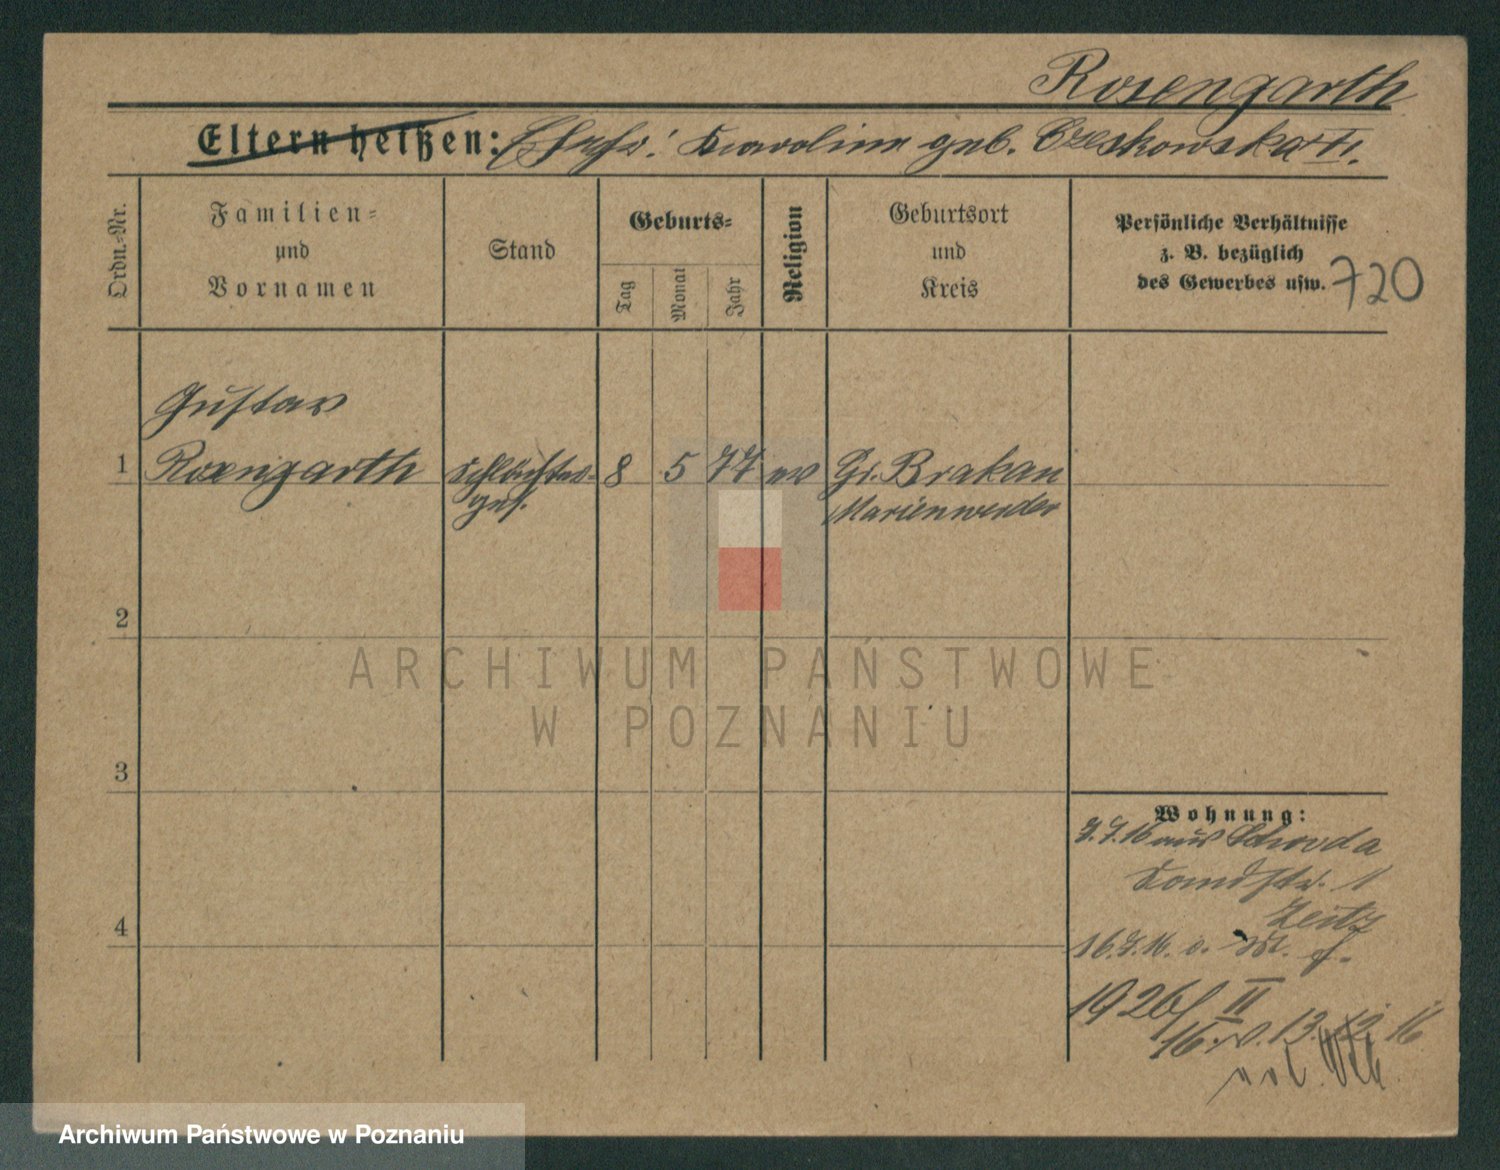 Rosengarth
Eltern heißen: Ehefr: Karoline geb. Czeskowska II.
Ordn.-Nr.
Familien-
und
Vornamen
Stand
Geburts-
Tag
Monat
Jahr
Religion
Geburtsort
und
Kreis
Persönliche Verhältnisse
z. B. bezüglich
des Gewerbes usw.
720
Gustav
1 Rosengarth Schlächter- 8 5 77 ev Gr. Brakau
ges. Marienwerder
2
3
4
Wohnung:
16 aus Schroda
1
Zeitz
1926/II
16. v. 13. 12. 16
ARCHIWUM PAŃSTWOWE
W POZNANIU
Archiwum Państwowe w Poznaniu